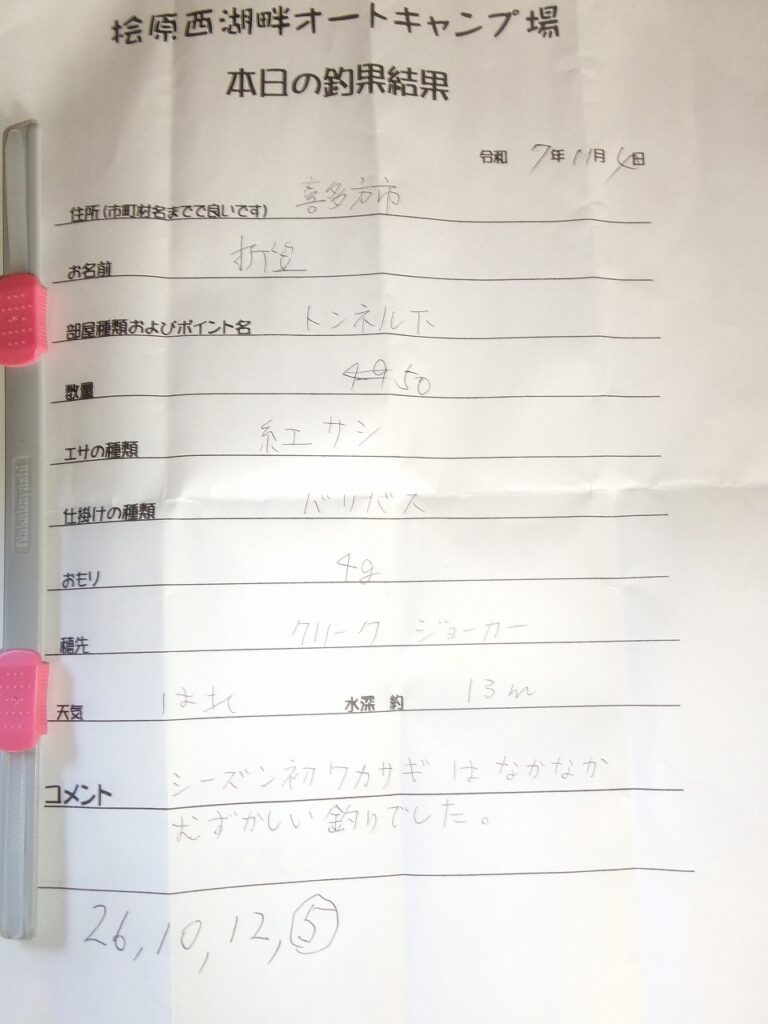 桧原西湖畔オートキャンプ場
本日の釣果結果
令和 7年 11月 4日
住所(市町村名までで良いです) 喜多方市
お名前
部屋種類およびポイント名 トンネル下
数量 49 50
エサの種類 紅サシ
仕掛けの種類 バリバス
おもり 4g
穂先 クリーク ジョーカー
天気 はれ 水深 約 13m
コメント シーズン初ワカサギはなかなか
むずかしい釣りでした。
26, 10, 12, 5